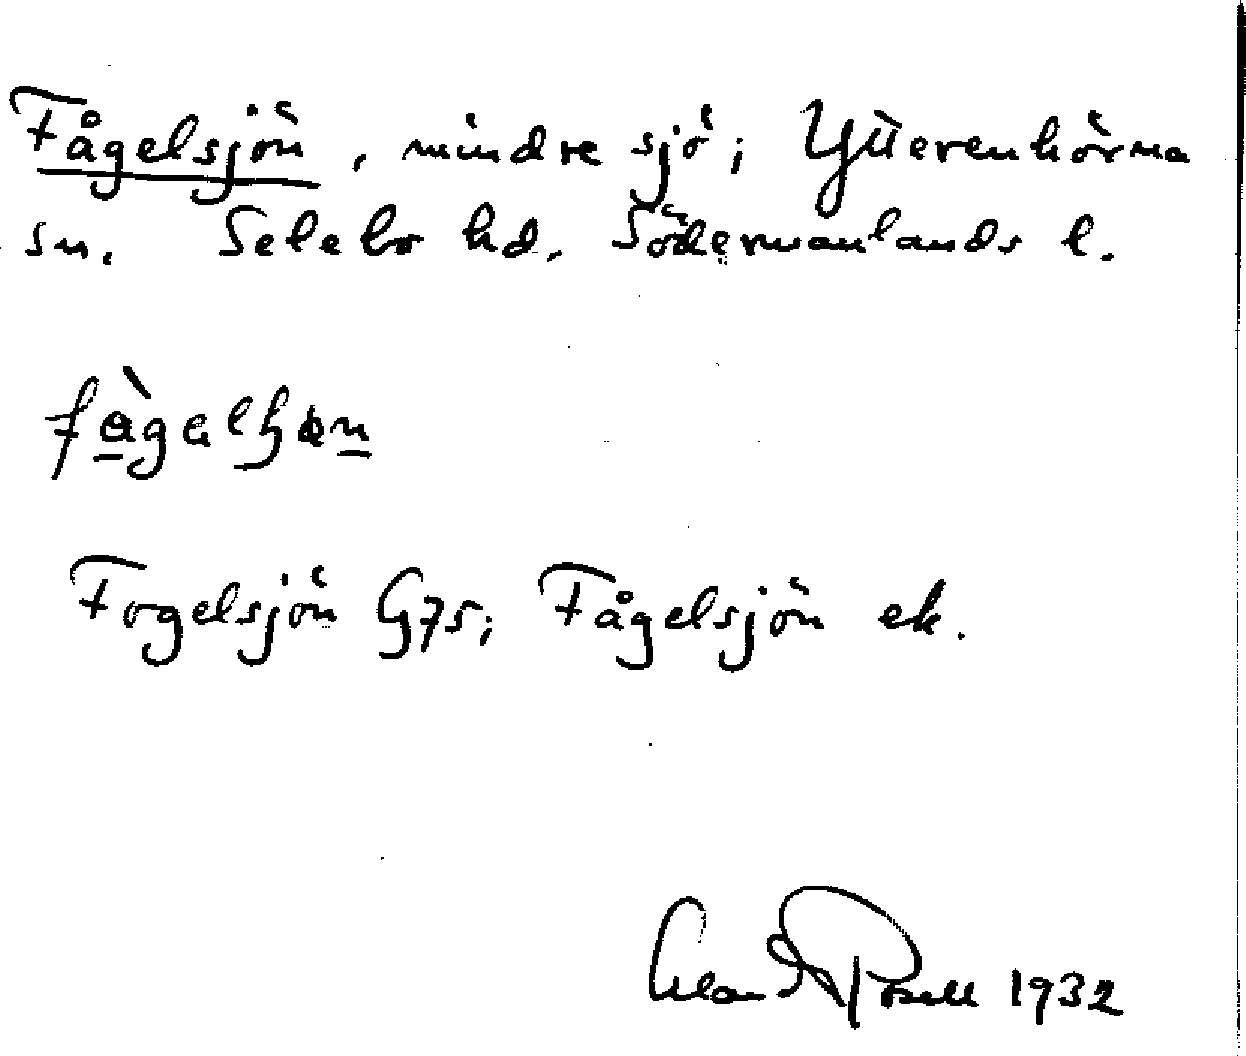 Fågelsjön, mindre sjö; Ytterenhörna
sn. Selebo hd. Södermanlands l.
Fogelsjön G75; Fågelsjön ek.
1932